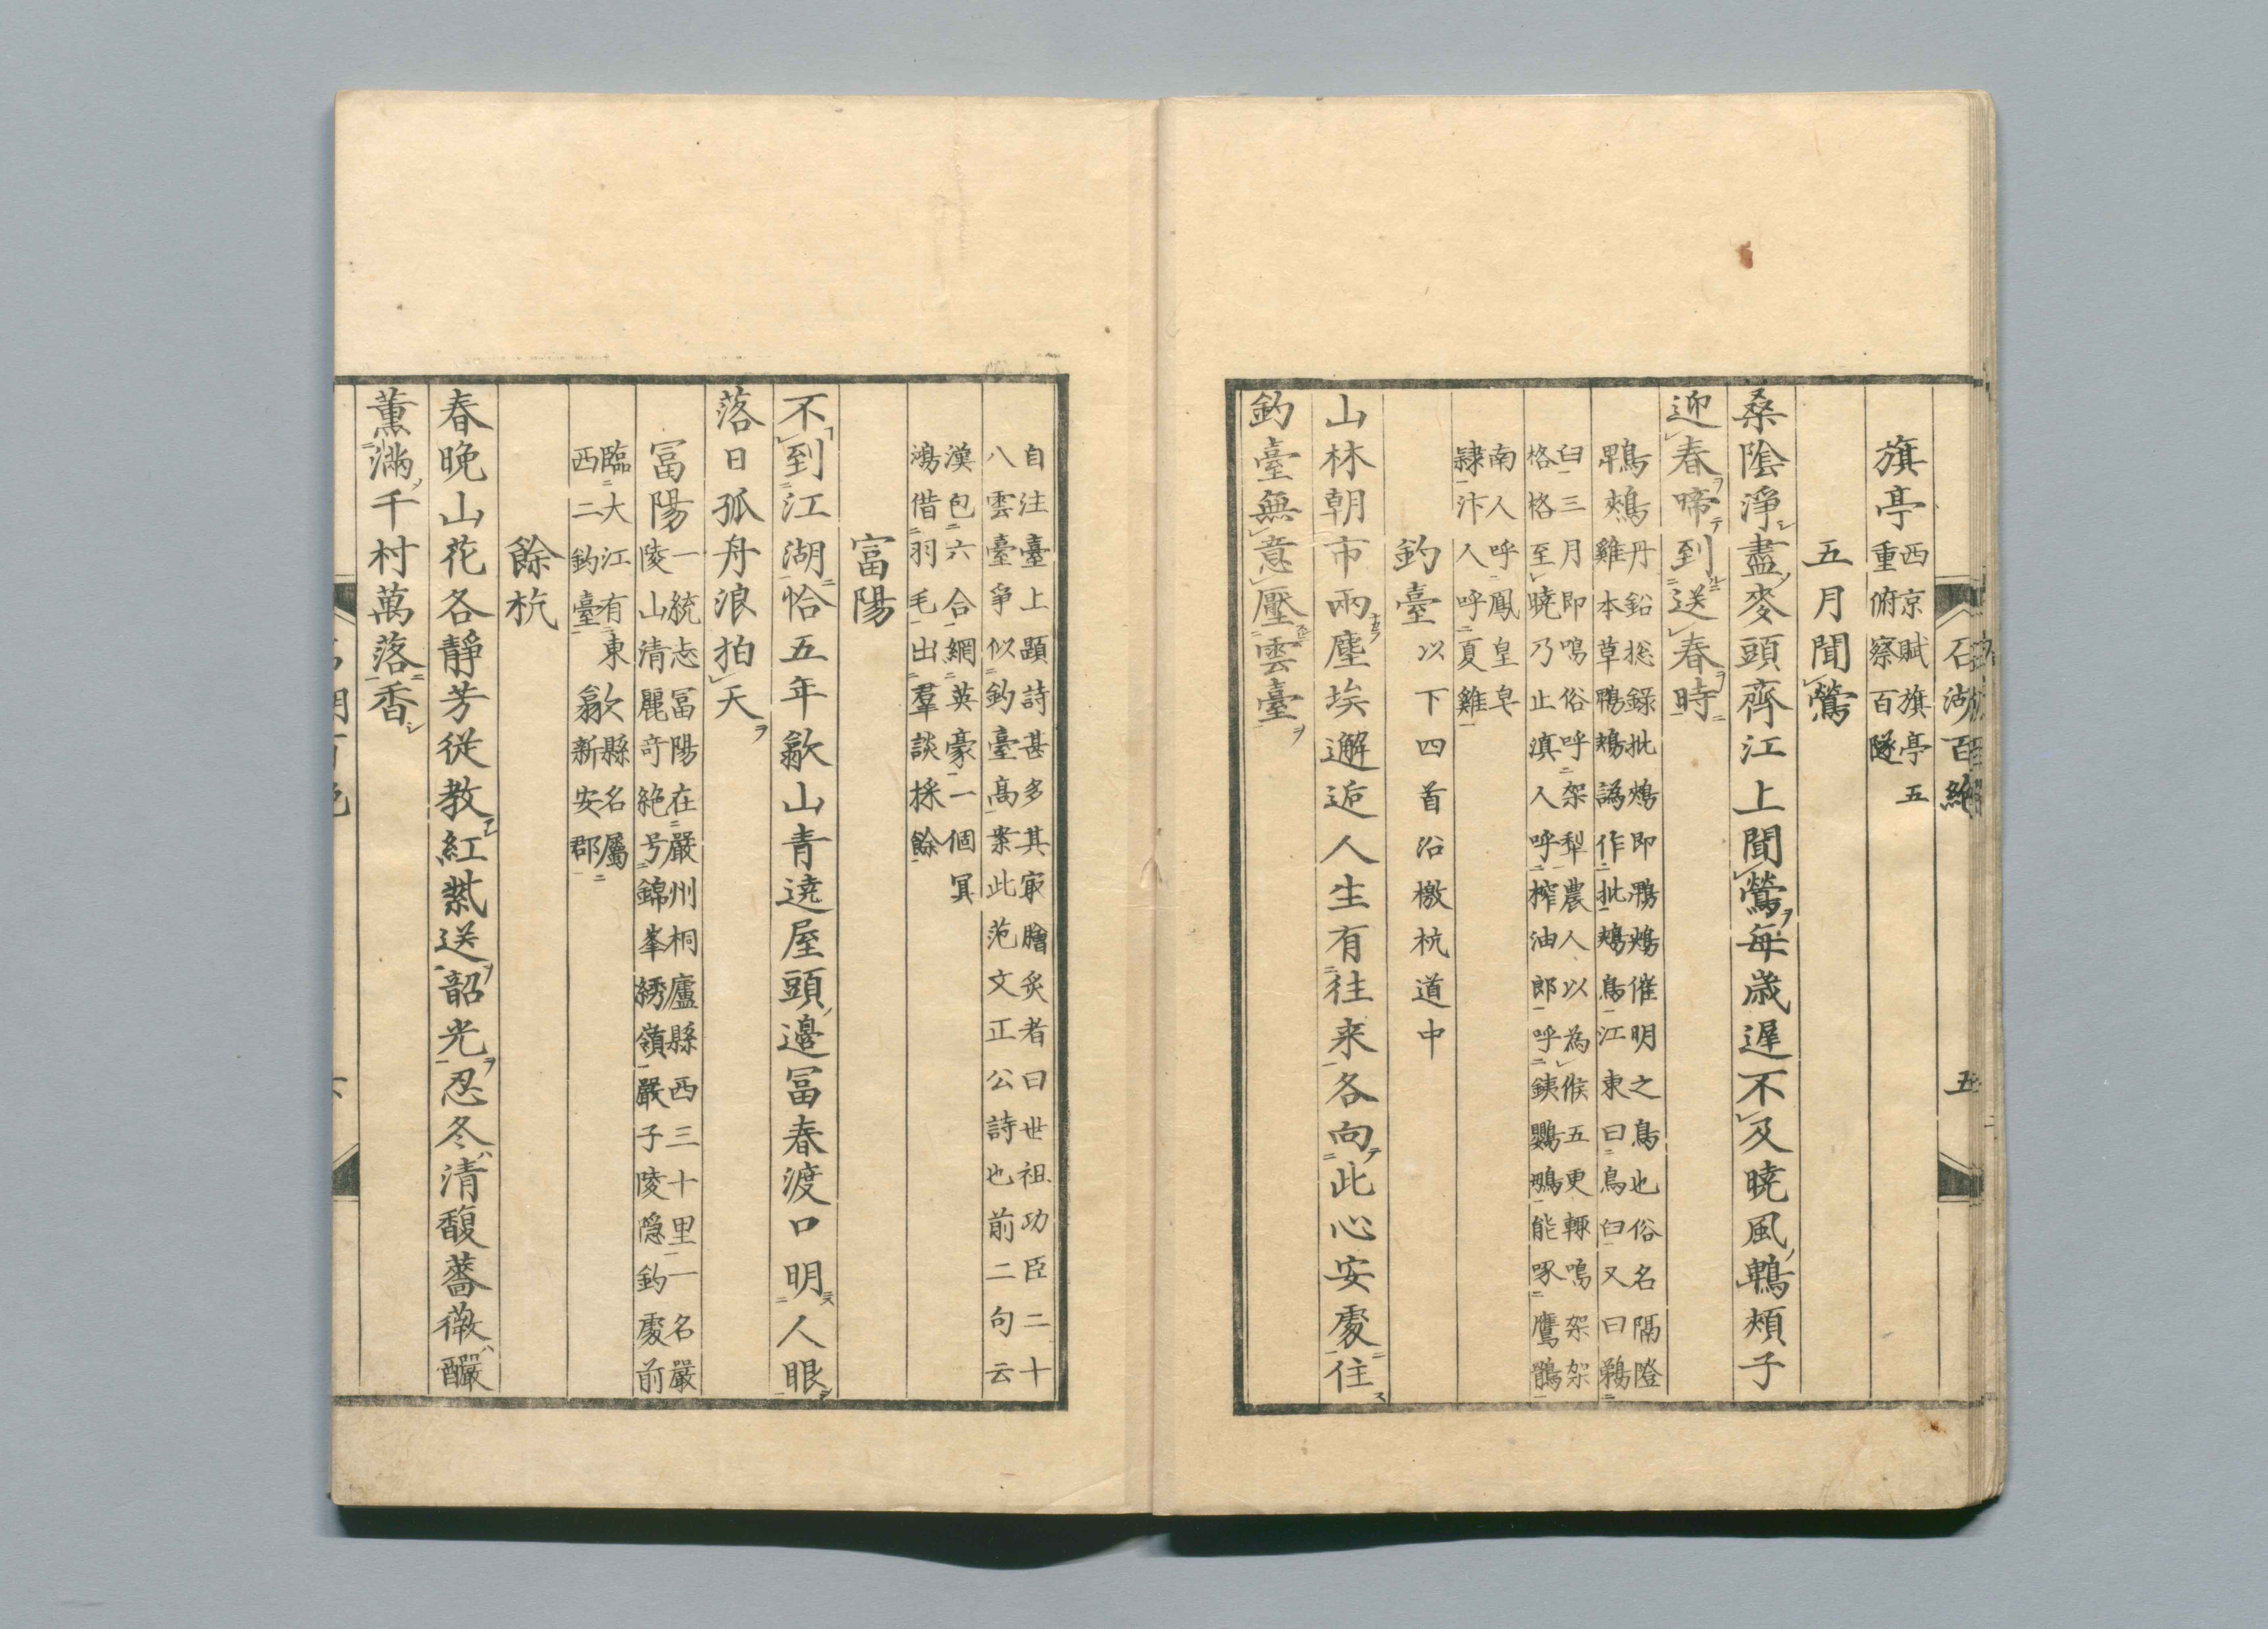 石湖百絶 五
旗亭 西京賦旗亭五
重俯察百隧
五月聞鶯
桑陰淨盡麥頭齊江上聞鶯每歲遲不及曉風鵯頰子
迎春啼到送春時
鵯鵊 丹鉛総録批鵊即鵯鵊催明之鳥也俗名隔隥
雞本草鵯鵊譌作批鵊鳥江東曰烏臼又曰鶨
臼三月即鳴俗呼架犁農人以為候五更輒鳴架架
格格至曉乃止滇人呼榨油郎呼鐵鸚鵡能啄鷹鶻
南人呼鳳皇皂
隷汴人呼夏雞
釣臺 以下四首沿檄杭道中
山林朝市兩塵埃邂逅人生有往来各向此心安處住
釣臺無意壓雲臺
自注臺上題詩甚多其㝡膾炙者曰世祖功臣二十
八雲臺爭似釣臺高案此范文正公詩也前二句云
漢包六合網英豪一個冥
鴻借羽毛出羣談採餘
富陽
不到江湖恰五年歙山青遶屋頭邉冨春渡口明人眼
落日孤舟浪拍天
冨陽 一統志冨陽在嚴州桐廬縣西三十里一名嚴
陵山清麗竒絶号錦峯綉嶺嚴子陵隠釣處前
臨大江有東歙縣名屬
西二釣臺 新安郡
餘杭
春晚山花各靜芳從教紅紫送韶光忍冬清馥薔薇釅
薫滿千村萬落香